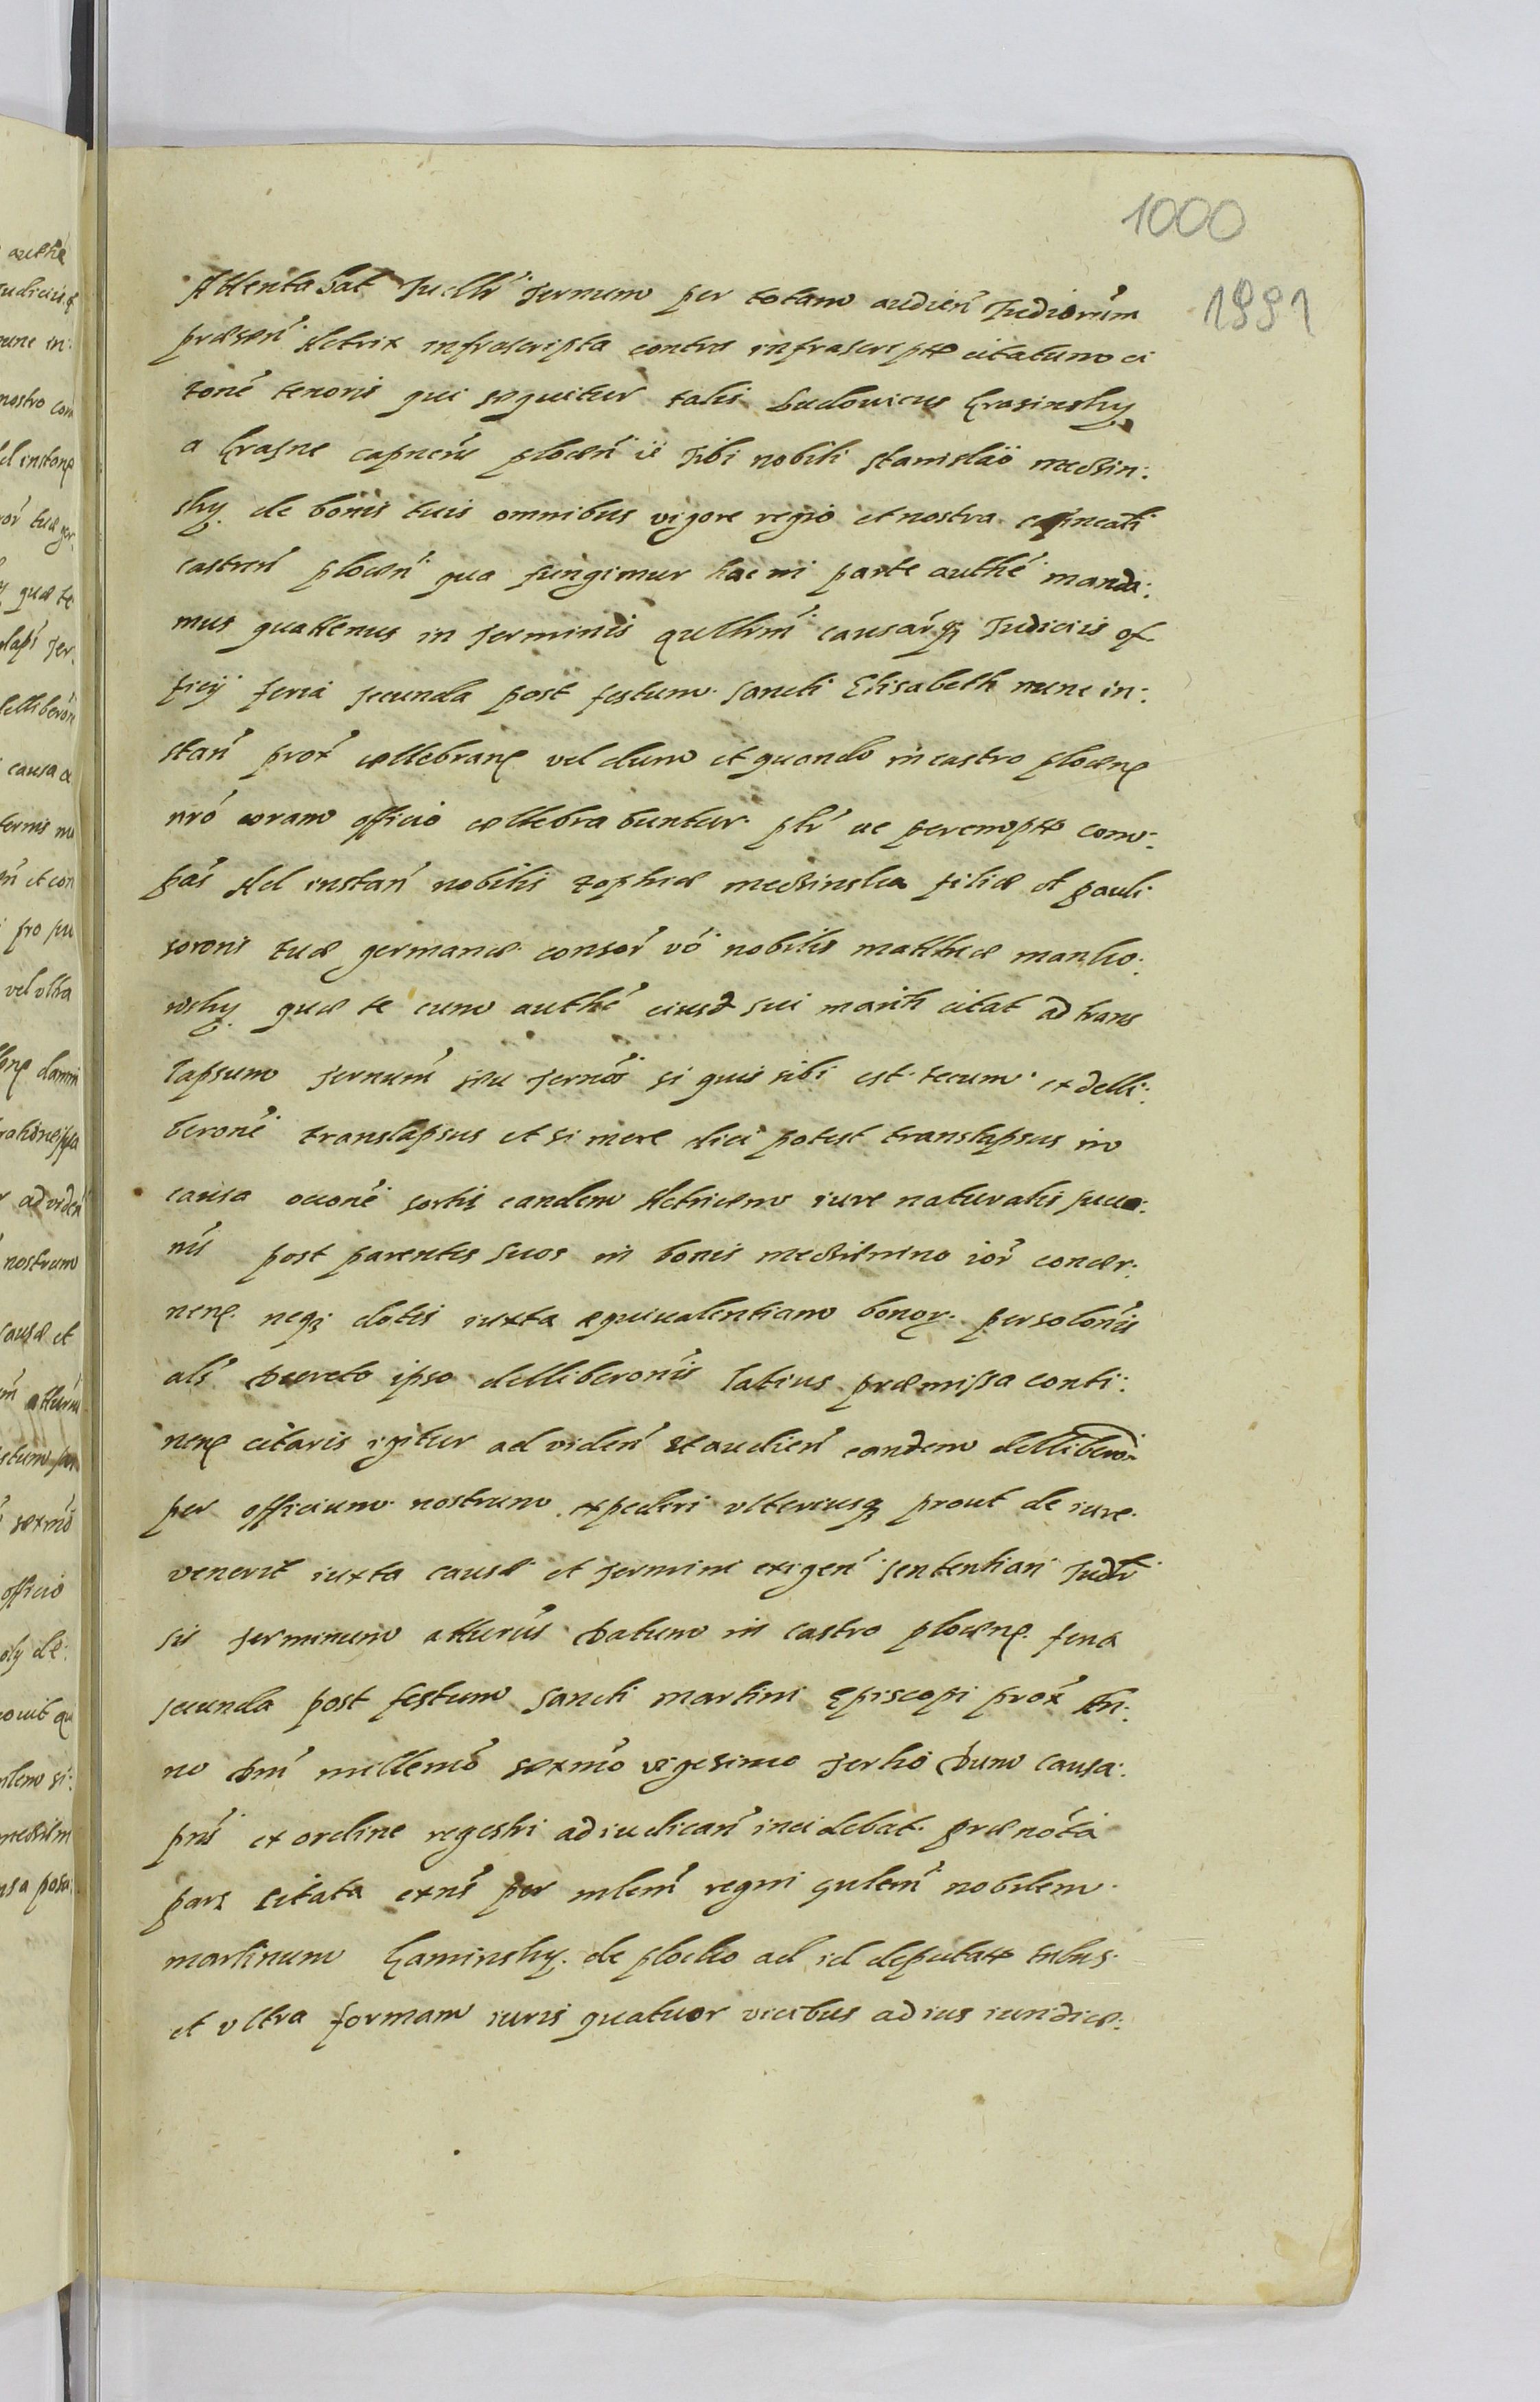 1000
1991
Attentabat Iudlr̃ Termum per totam audien̄ Iudiorum̃
præsen̄ Actrix infrascripta contra infrascriptᷓ citatum ci
tonē tenoris qui sequitur talis Ludouicus Krasinsky
a Krasne capnēus plocen̄ iī Tibi nobili Stanislao medzin:
sky de bonis tuis omnibus vigore regio et nostra capneāli
castren̄ plocen̄ qua fungimur hac in parte authē manda:
mus quattenus in Terminis qullrm̄ causarq̄ȝ Iudiciis of
ficÿ feria secunda post festum Sancti Elisabeth nunc in:
stan̄ prox̄ cællebranȩ vel dum et quando in castro plocenȩ
nrō coram officio cællebrabuntur plr̄ ac peremptᷓ com:
pās Ad instan̄ nobilis Zophiæ medzinska filiæ ol pauli
sororis tuæ germanæ consor̄ vō nobilis matthiæ manko:
wsky quæ te cum authē eiusd sui mariti citat ad trans
lapsum Termum̄ seu Termōs si quis sibi est tecum ex delli:
beronē translapsus et si mere dici potest translapsus in
causa oconē sortis eandem Actricem iure naturalis succo:
nis post parentes suos in bonis medznino ior̄ concer:
nenȩ neqȝ dotis iuxta æquiualentiam bonoꝝ persolōnis
als̄ Decreto ipso delliberonīs latius præmissa conti:
nenȩ citaris igitur ad viden̄ et audien̄ eandem delliberō̄
per officium nostrum expediri vlteriusqȝ prout de iure
venerit iuxta causæ et Termini exigen̄ sententiari Iudlr̄
sis Terminum attturūs Datum in castro plocenȩ feria
secunda post festum Sancti martini Episcopi prox̄ An:
no Dnī millemō sexmō vigesimo Tertio Dum causa
pns̄ ex ordine regestri adiudican̄ incidebat prænōta
pars citata exns̄ per mlem̄ regni gnlem̄ nobilem
martinum Kaminsky de plocko ad id deputatᷓ tribus
et vltra formam iuris quatuor vicibus ad ius iuridice: